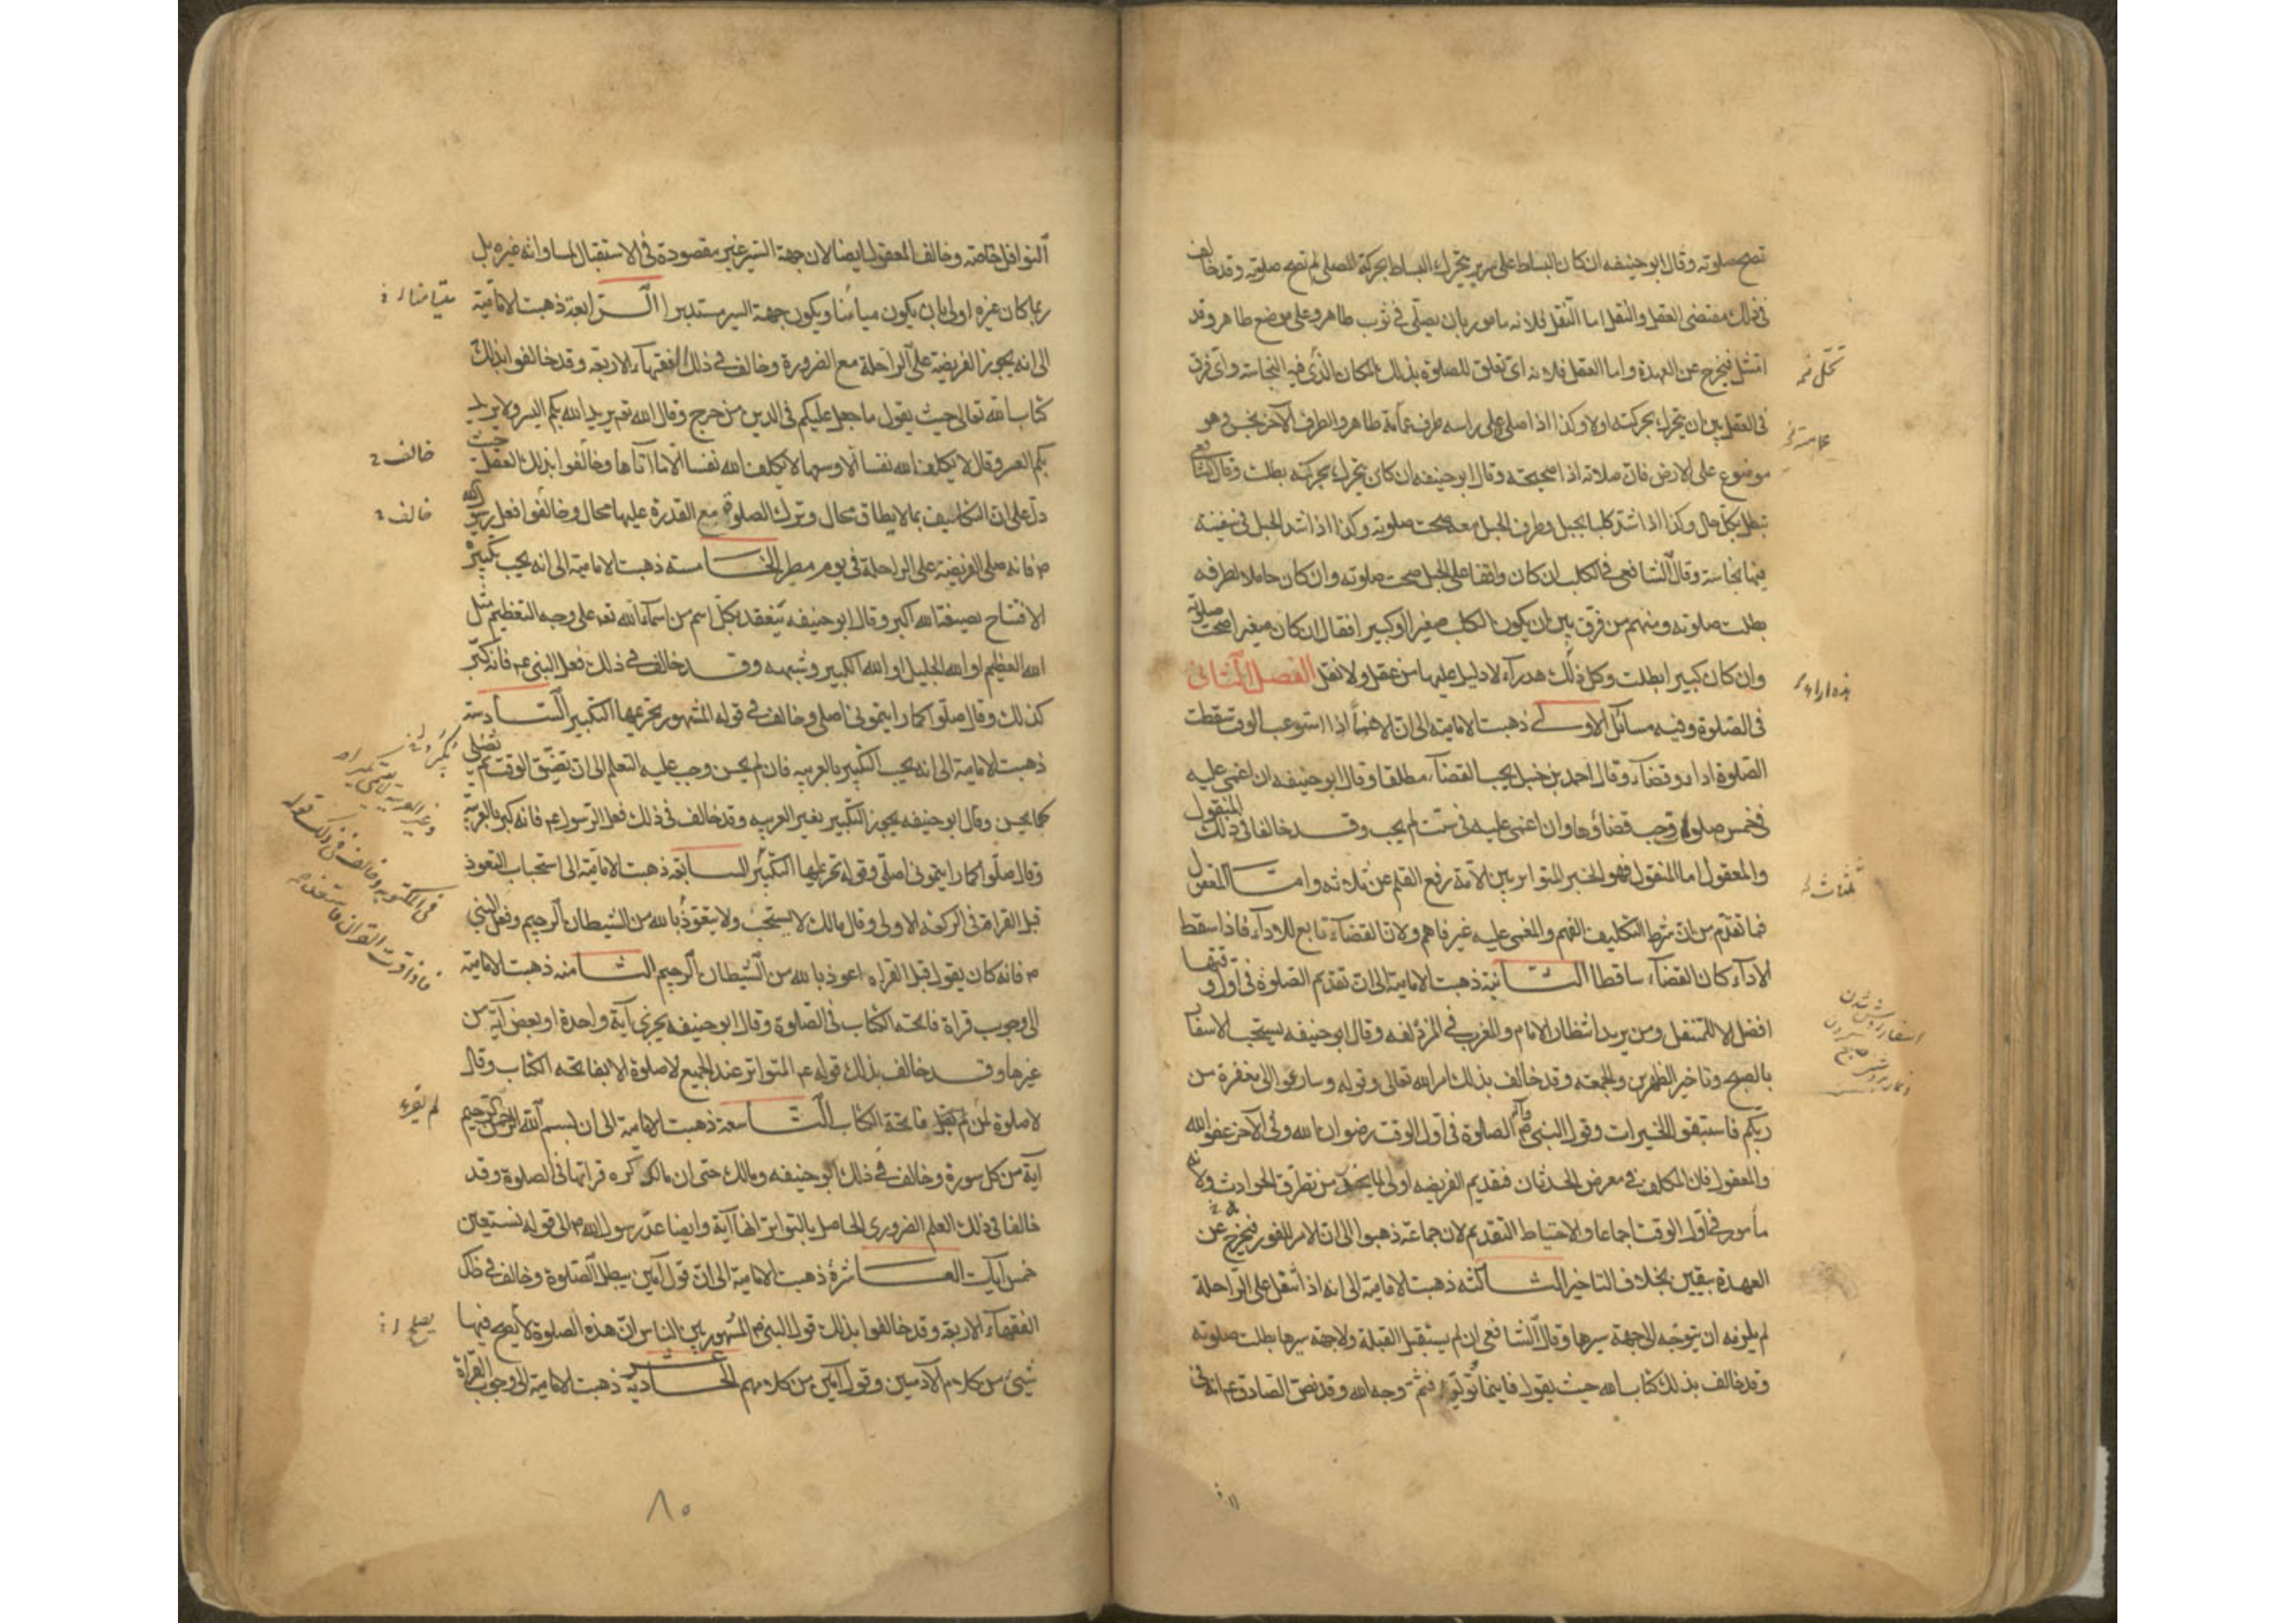 تصح صلوته وقال ابو حنيفه ان كان البساط على سرير يتحرك البساط بحركة المصلى لم تصح صلوته وقد خالف
فى ذلك مقتضى العقل والنقل اما النقل فلانه مامور بان يصلى فى ثوب طاهر وعلى موضع طاهر وقد
امتثل فيخرج عن العهدة واما العقل فلانه اى تعلق للصلوة بذلك المكان الذى فيه النجاسة واى فرق
فى العقل بين ان يتحرك بحركته اولا وكذا اذا صلى على راسه طرف عمامة طاهر والطرف الآخر نجس وهو
موضوع على الارض فان صلاته اذا صحيحة وقال ابو حنيفه ان كان يتحرك بحركته بطلت وقال الشافعى
تبطل بكل حال وكذا اذا شد كلبا بحبل وطرف الحبل معه صحت صلوته وكذا اذا شد الحبل فى سفينة
فيها نجاسة وقال الشافعى فى الكلب ان كان واقفا على الحبل صحت صلوته وان كان حاملا لطرفه
بطلت صلوته ومنهم من فرق بين ان يكون الكلب صغيرا او كبيرا فقال ان كان صغيرا صحت صلوته
وان كان كبيرا بطلت وكل ذلك هدراء لا دليل عليها من عقل ولا نقل الفصل الثانى
فى الصلوة وفيه مسائل الاولى ذهبت الامامية الى ان الاغماء اذا استوعب الوقت سقطت
الصلوة اداء وقضاء وقال احمد بن حنبل يجب القضاء مطلقا وقال ابو حنيفه ان اغمى عليه
فى خمس صلوة وجب قضاؤها وان اغمى عليه فى ست لم يجب وقد خالفا فى ذلك المنقول
والمعقول اما المنقول فهو الخبر المتواتر بين الامة رفع القلم عن ثلاثه واما المعقول
فما تقدم من ان شرط التكليف الفهم والمغمى عليه غير فاهم ولان القضاء تابع للاداء فاذا سقط
الاداء كان القضاء ساقطا الثانية ذهبت الامامية الى ان تقديم الصلوة فى اول وقتها
افضل الا للمتنفل ومن يريد انتظار الامام والمغرب فى المزدلفه وقال ابو حنيفه يستحب الاسفار
بالصبح وتاخير الظهرين والجمعة وقد خالف بذلك امر الله تعالى وقوله وسارعوا الى مغفرة من
ربكم فاستبقوا الخيرات وقول النبى الصلوة فى اول الوقت رضوان الله وفى الآخر عفو الله
والمعقول فان المكلف فى معرض الحدثان فتقديم الفريضه اولى من تطرق الحوادث ولانه
مأمور فى اول الوقت اجماعا والاحتياط التقديم لان جماعة ذهبوا الى ان الامر للفور فيخرج عن
العهدة بيقين بخلاف التاخير الثالثه ذهبت الامامية الى انه اذا تنفل على الراحلة
لم يلزمه ان يتوجه الى جهة سيرها وقال الشافعى ان لم يستقبل القبلة ولا جهة سيرها بطلت صلوته
وقد خالف بذلك كتاب الله حيث يقول فاينما تولوا فثم وجه الله وقد نص الصادق ع انه فى
النوافل خاصة وخالف المعقول ايضا لان جهة السير غير مقصودة فى الاستقبال لمساواته غيره بل
ربما كان غيره اولى بان يكون ميامنا ويكون جهة السير مستدبرا الرابعة ذهبت الامامية
الى انه يجوز الفريضة على الراحلة مع الضرورة وخالف فى ذلك الفقهاء الاربعة وقد خالفوا بذلك
كتاب الله تعالى حيث يقول ما جعل عليكم فى الدين من حرج وقال الله تع يريد الله بكم اليسر ولا يريد
بكم العسر وقال لا يكلف الله نفسا الا وسعها لا يكلف الله نفسا الا ما آتاها وخالفوا بذلك العقل حيث
دل على ان التكليف بما لا يطاق محال وترك الصلوة مع القدرة عليها محال وخالفوا فعل رسول الله
ص فانه صلى الفريضة على الراحلة فى يوم مطر الخامسة ذهبت الامامية الى انه يجب تكبيرة
الافتتاح بصيغة الله اكبر وقال ابو حنيفه ينعقد بكل اسم من اسماء الله تعه على وجه التعظيم مثل
الله العظيم او الله الجليل او الله الكبير وشبهه وقد خالف فى ذلك فعل النبى ع م فانه كبر
كذلك وقال صلوا كما رايتمونى اصلى وخالف فى قوله المشهور تحريمها التكبير السادسة
ذهبت الامامية الى انه يجب التكبير بالعربيه فان لم يحسن وجب عليه التعلم الى ان تضيق الوقت ثم يصلى
كما يحسن وقال ابو حنيفه يجوز التكبير بغير العربيه وقد خالف فى ذلك فعل الرسول ع م فانه كبر بالعربية
وقال صلوا كما رايتمونى اصلى وقوله تحريمها التكبير السابعه ذهبت الامامية الى استحباب التعوذ
قبل القراءة فى الركعه الاولى وقال مالك لا يستحب ولا يتعوذ بالله من الشيطان الرجيم وفعل النبى
ص فانه كان يقول قبل القراءه اعوذ بالله من الشيطان الرجيم الثامنه ذهبت الامامية
الى وجوب قراة فاتحة الكتاب فى الصلوة وقال ابو حنيفه يجزى آية واحدة او بعض آية من
غيرها وقد خالف بذلك قوله ع م المتواتر عند الجميع لا صلوة الا بفاتحه الكتاب وقال
لا صلوة لمن لم يقرا فاتحة الكتاب التاسعة ذهبت الامامية الى ان بسم الله الرحمن الرحيم
آية من كل سورة وخالف فى ذلك ابو حنيفه ومالك حتى ان مالك كره قراتها فى الصلوة وقد
خالفا فى ذلك العلم الضرورى الحاصل بالتواتر انها آية وايضا عد رسول الله ص الى قوله نستعين
خمس آيات العاشرة ذهبت الامامية الى ان قول آمين يبطل الصلوة وخالف فى ذلك
الفقهاء الاربعة وقد خالفوا بذلك قول النبى ص المشهور بين الناس ان هذه الصلوة لا يصح فيها
شيئ من كلام الآدميين وقول آمين من كلامهم الحادية عشر ذهبت الامامية الى وجوب القراة
خالف
خالف
لم يقرء
يصلح
٨٠